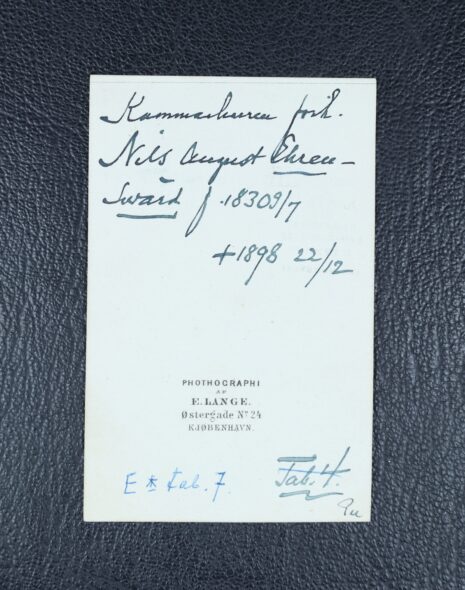 Kammarherren frih.
Nils August Ehren-
swärd f. 1830 9/7
+ 1898 22/12
PHOTHOGRAPHI
AF
E. LANGE.
Østergade No 24
KJØBENHAVN.
E * tab. 7.
Tab. 4.